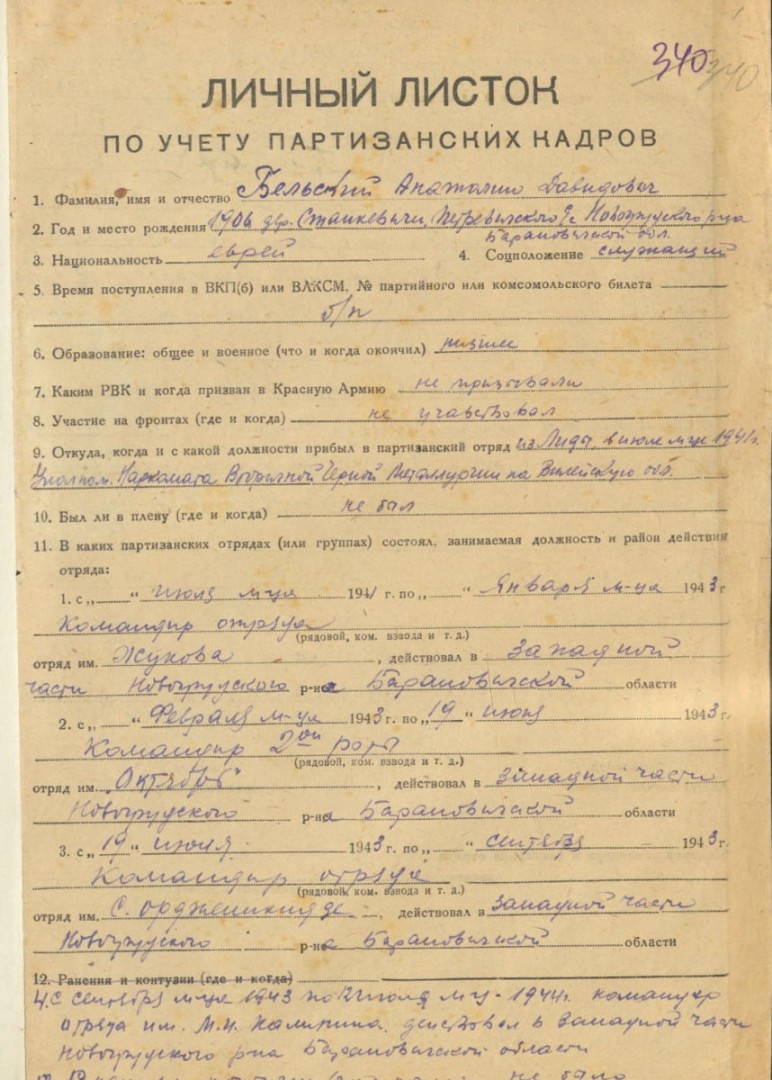 340 340
ЛИЧНЫЙ ЛИСТОК
ПО УЧЕТУ ПАРТИЗАНСКИХ КАДРОВ
1. Фамилия, имя и отчество Бельский Анатолий Давидович
2. Год и место рождения 1906 дер. Станкевичи, Петревичского с/с Новогрудского р-на
Барановичской обл.
3. Национальность еврей 4. Соцположение служащий
5. Время поступления в ВКП(б) или ВЛКСМ, № партийного или комсомольского билета
б/п
6. Образование: общее и военное (что и когда окончил) низшее
7. Каким РВК и когда призван в Красную Армию не призывали
8. Участие на фронтах (где и когда) не учавствовал
9. Откуда, когда и с какой должности прибыл в партизанский отряд из Лиды, в июле м-це 1941 г.
Уполном. Наркомата Вторичной Черной Металлургии на Вилейскую обл.
10. Был ли в плену (где и когда) не был
11. В каких партизанских отрядах (или группах) состоял, занимаемая должность и район действия
отряда:
1. с „ “ июля м-ца 1941 г. по „ “ Января м-ца 1943 г.
Командир отряда
(рядовой, ком. взвода и т. д.)
отряд им. Жукова, действовал в западной
части Новогрудского р-на Барановичской области
2. с „ “ Февраля м-ца 1943 г. по „19“ июня 1943 г.
Командир 2ой роты
(рядовой, ком. взвода и т. д.)
отряд им. "Октябрь", действовал в западной части
Новогрудского р-на Барановичской области
3. с „19“ июня 1943 г. по „ “ сентября 1943 г.
Командир отряда
(рядовой, ком. взвода и т. д.)
отряд им. С. Орджоникидзе, действовал в западной части
Новогрудского р-на Барановичской области
12. Ранения и контузии (где и когда)
4. С сентября м-ца 1943 по июля м-ц 1944 г. командир
отряда им. М.И. Калинина, действовал в западной части
Новогрудского р-на Барановичской области
не было